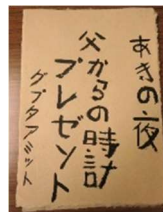 あきの夜
父からの時計
プレゼント
グプタアミット